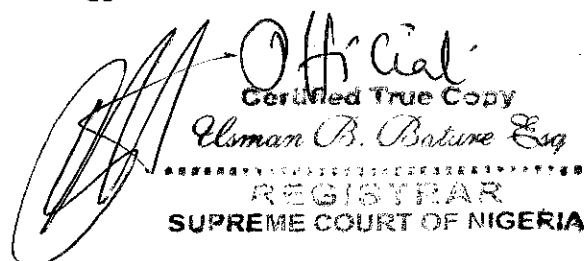 Official
Certified True Copy
Usman B. Bature Esq
REGISTRAR
SUPREME COURT OF NIGERIA